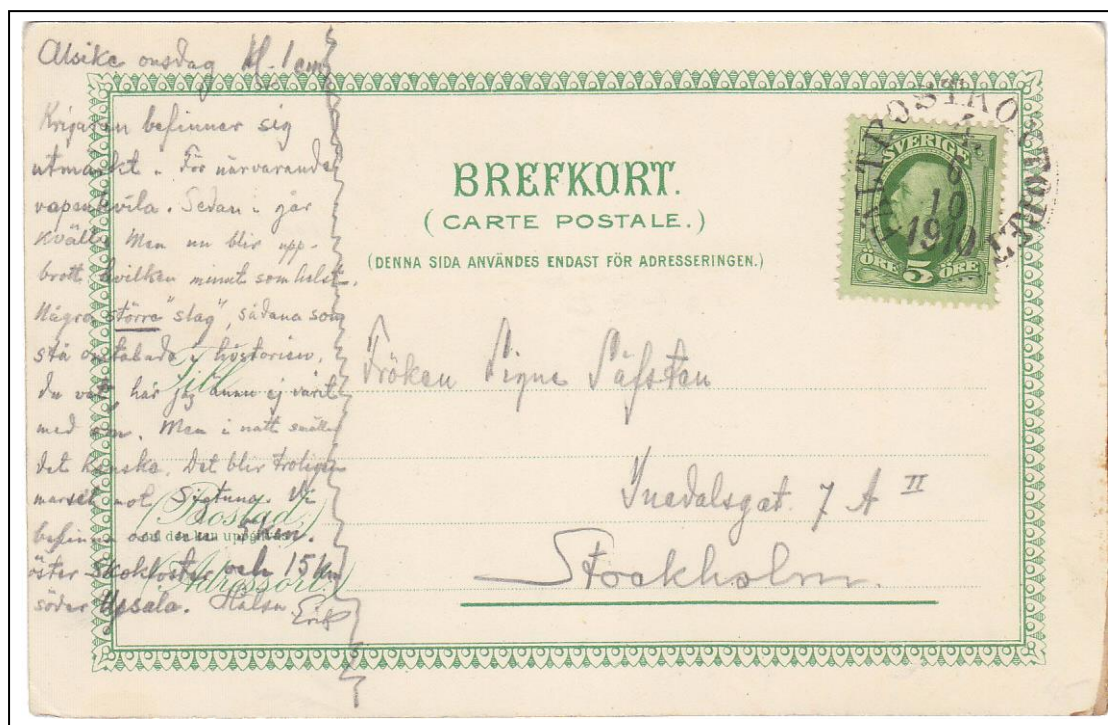 Alsike onsdag kl. 1 em
Krigaren befinner sig
utmärkt. För närvarande
vapenhvila. Sedan i går
kväll. Men nu blir upp-
brott hvilken minut som helst.
Några större "slag", sådana som
stå omtalade i historien,
du vet, har jag ännu ej varit
med om. Men i natt smäller
det kanske. Det blir troligen
mot Sigtuna. Vi
befinna oss nu 5 km.
öster Skokloster och 15 km
söder Upsala. Hälsn. Erik
BREFKORT.
(CARTE POSTALE.)
(DENNA SIDA ANVÄNDES ENDAST FÖR ADRESSERINGEN.)
SVERIGE
ÖRE 5 ÖRE
6
10
1910
Till
Fröken Signe Säfstan
Inedalsgat. 7 A II
(Bostad,
om den kan uppgifvas)
Stockholm
(Adressort)